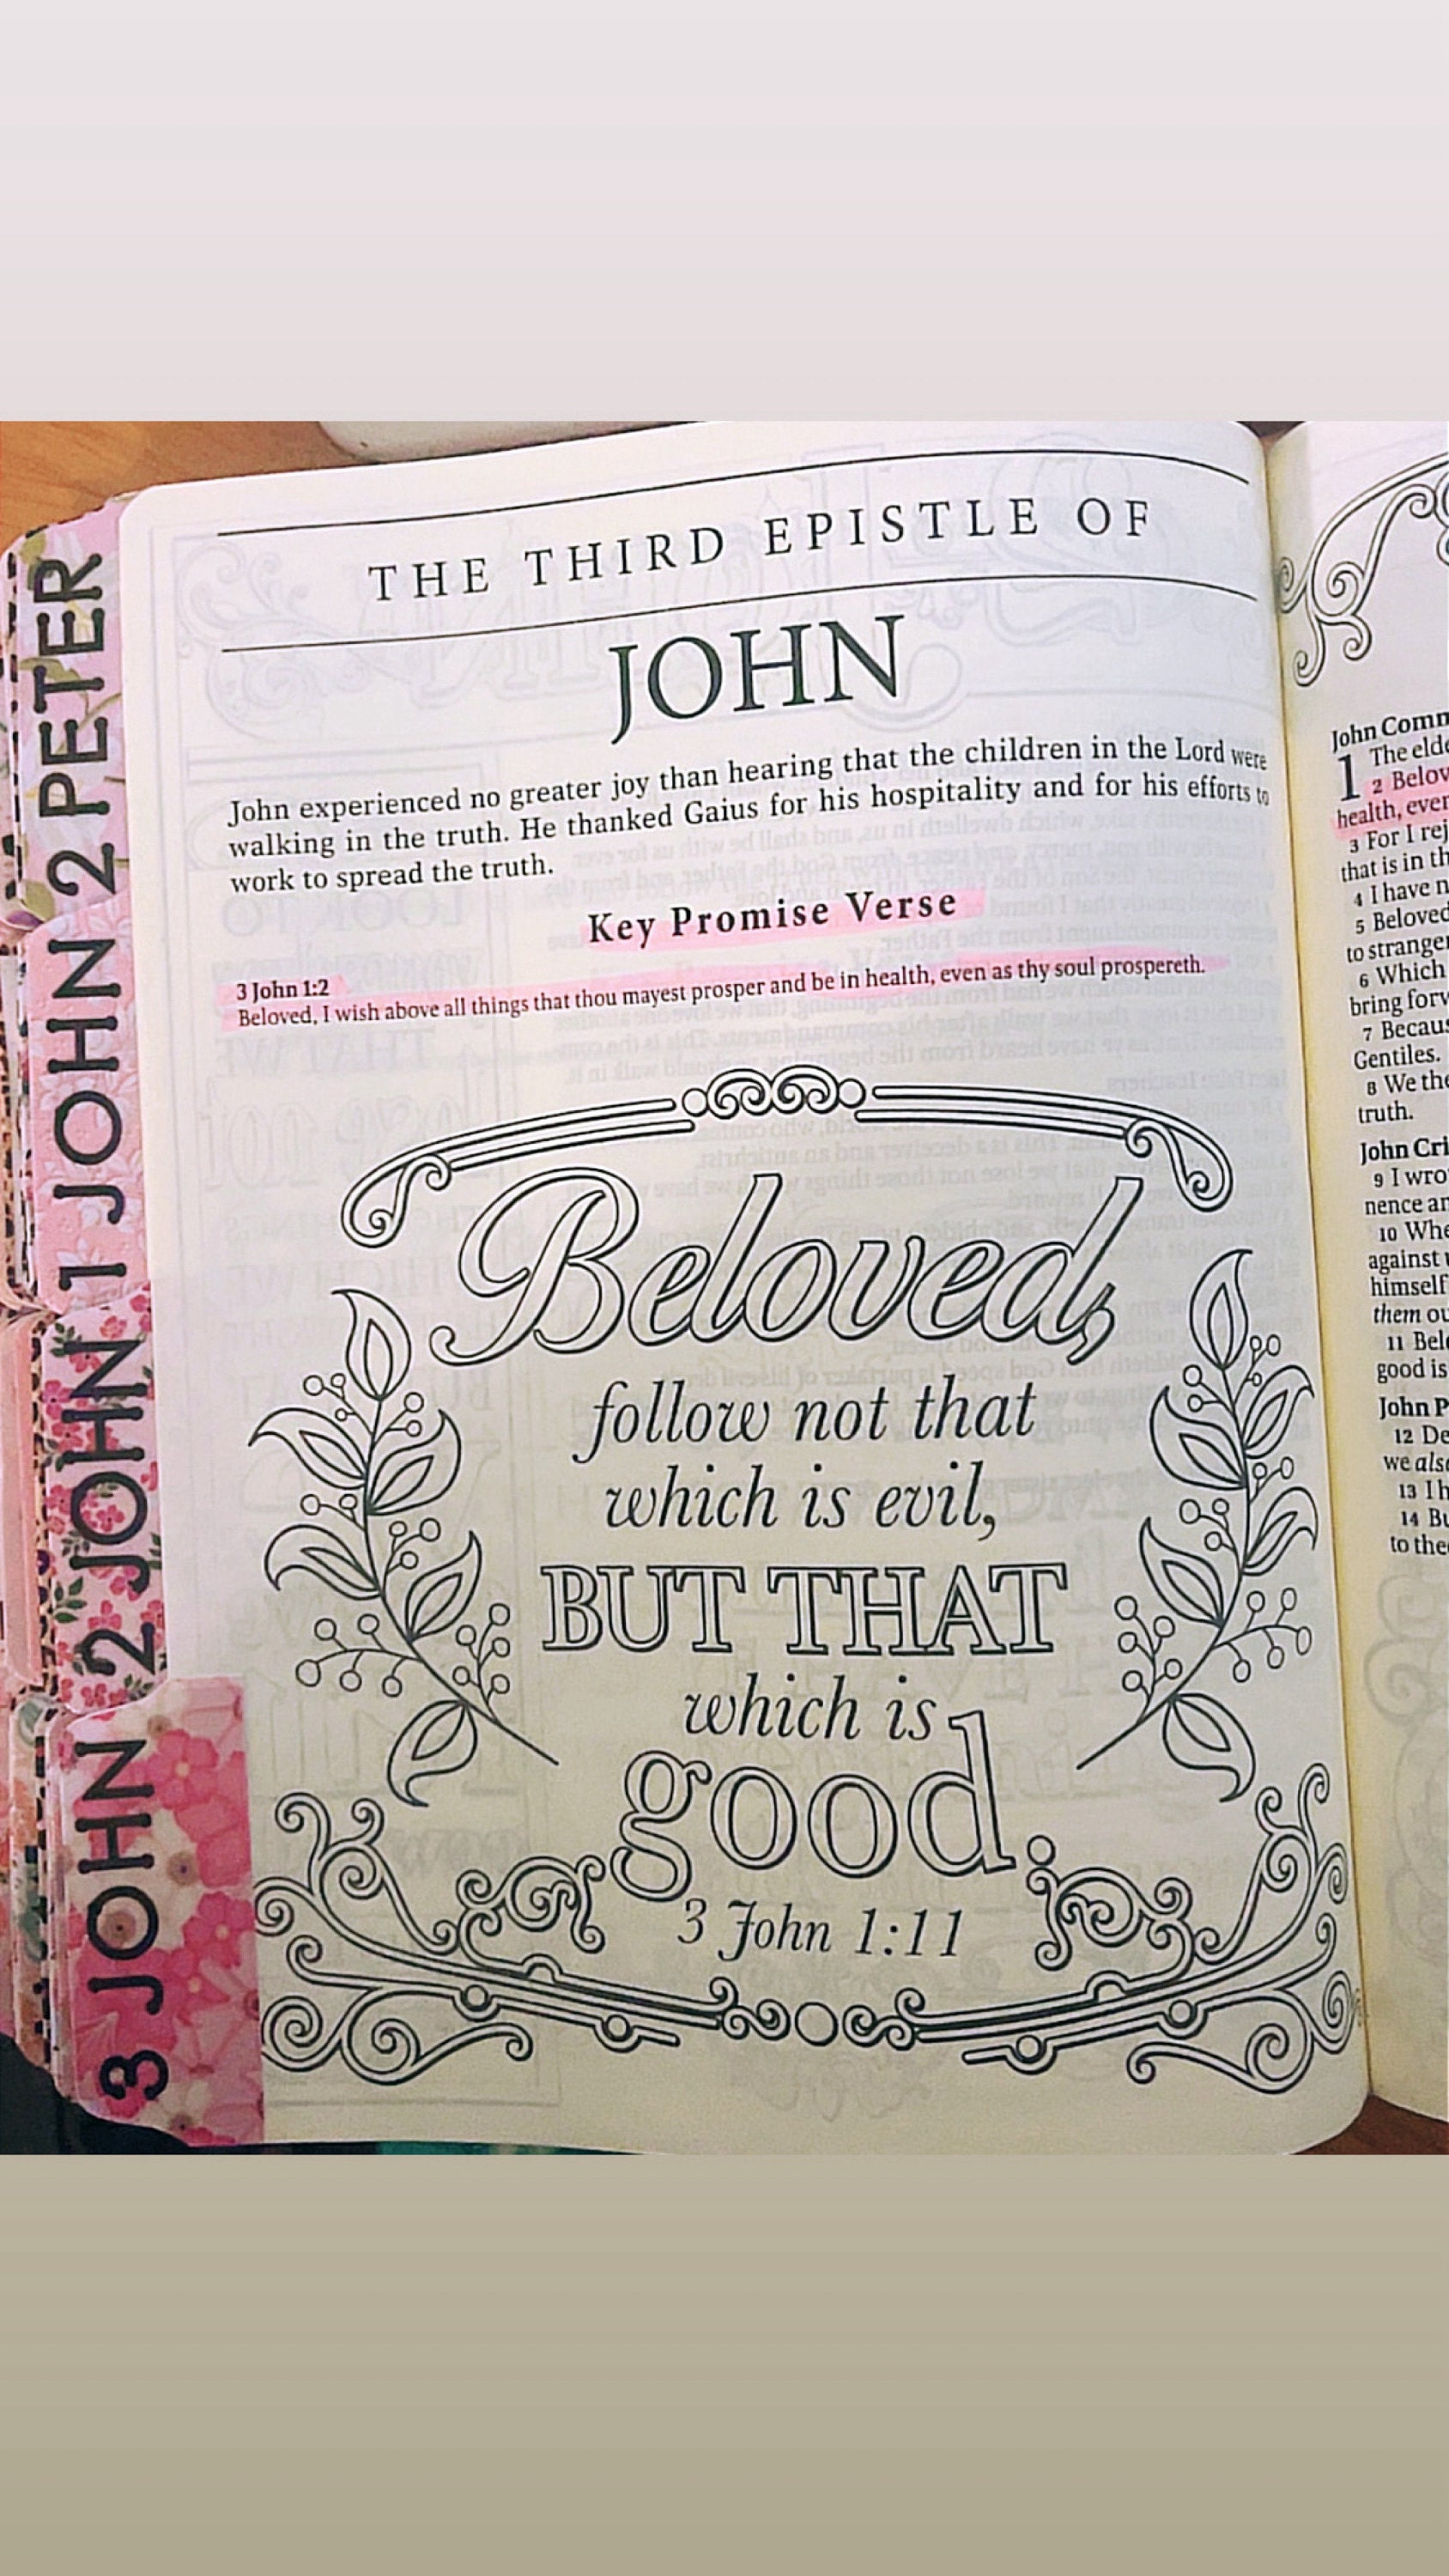 THE THIRD EPISTLE OF
JOHN
John experienced no greater joy than hearing that the children in the Lord were
walking in the truth. He thanked Gaius for his hospitality and for his efforts to
work to spread the truth.
Key Promise Verse
3 John 1:2
Beloved, I wish above all things that thou mayest prosper and be in health, even as thy soul prospereth.
Beloved,
follow not that
which is evil,
BUT THAT
which is
good.
3 John 1:11
2 PETER
1 JOHN
2 JOHN
3 JOHN
John Comm
1 The elde
2 Belov
health, even
3 For I rej
that is in th
4 I have n
5 Beloved
to stranger
6 Which
bring forw
7 Becaus
Gentiles.
8 We the
truth.
John Cri
9 I wro
nence an
10 Whe
against
himself
them ou
11 Belo
good is
John P
12 De
we also
13 I h
14 Bu
to thee